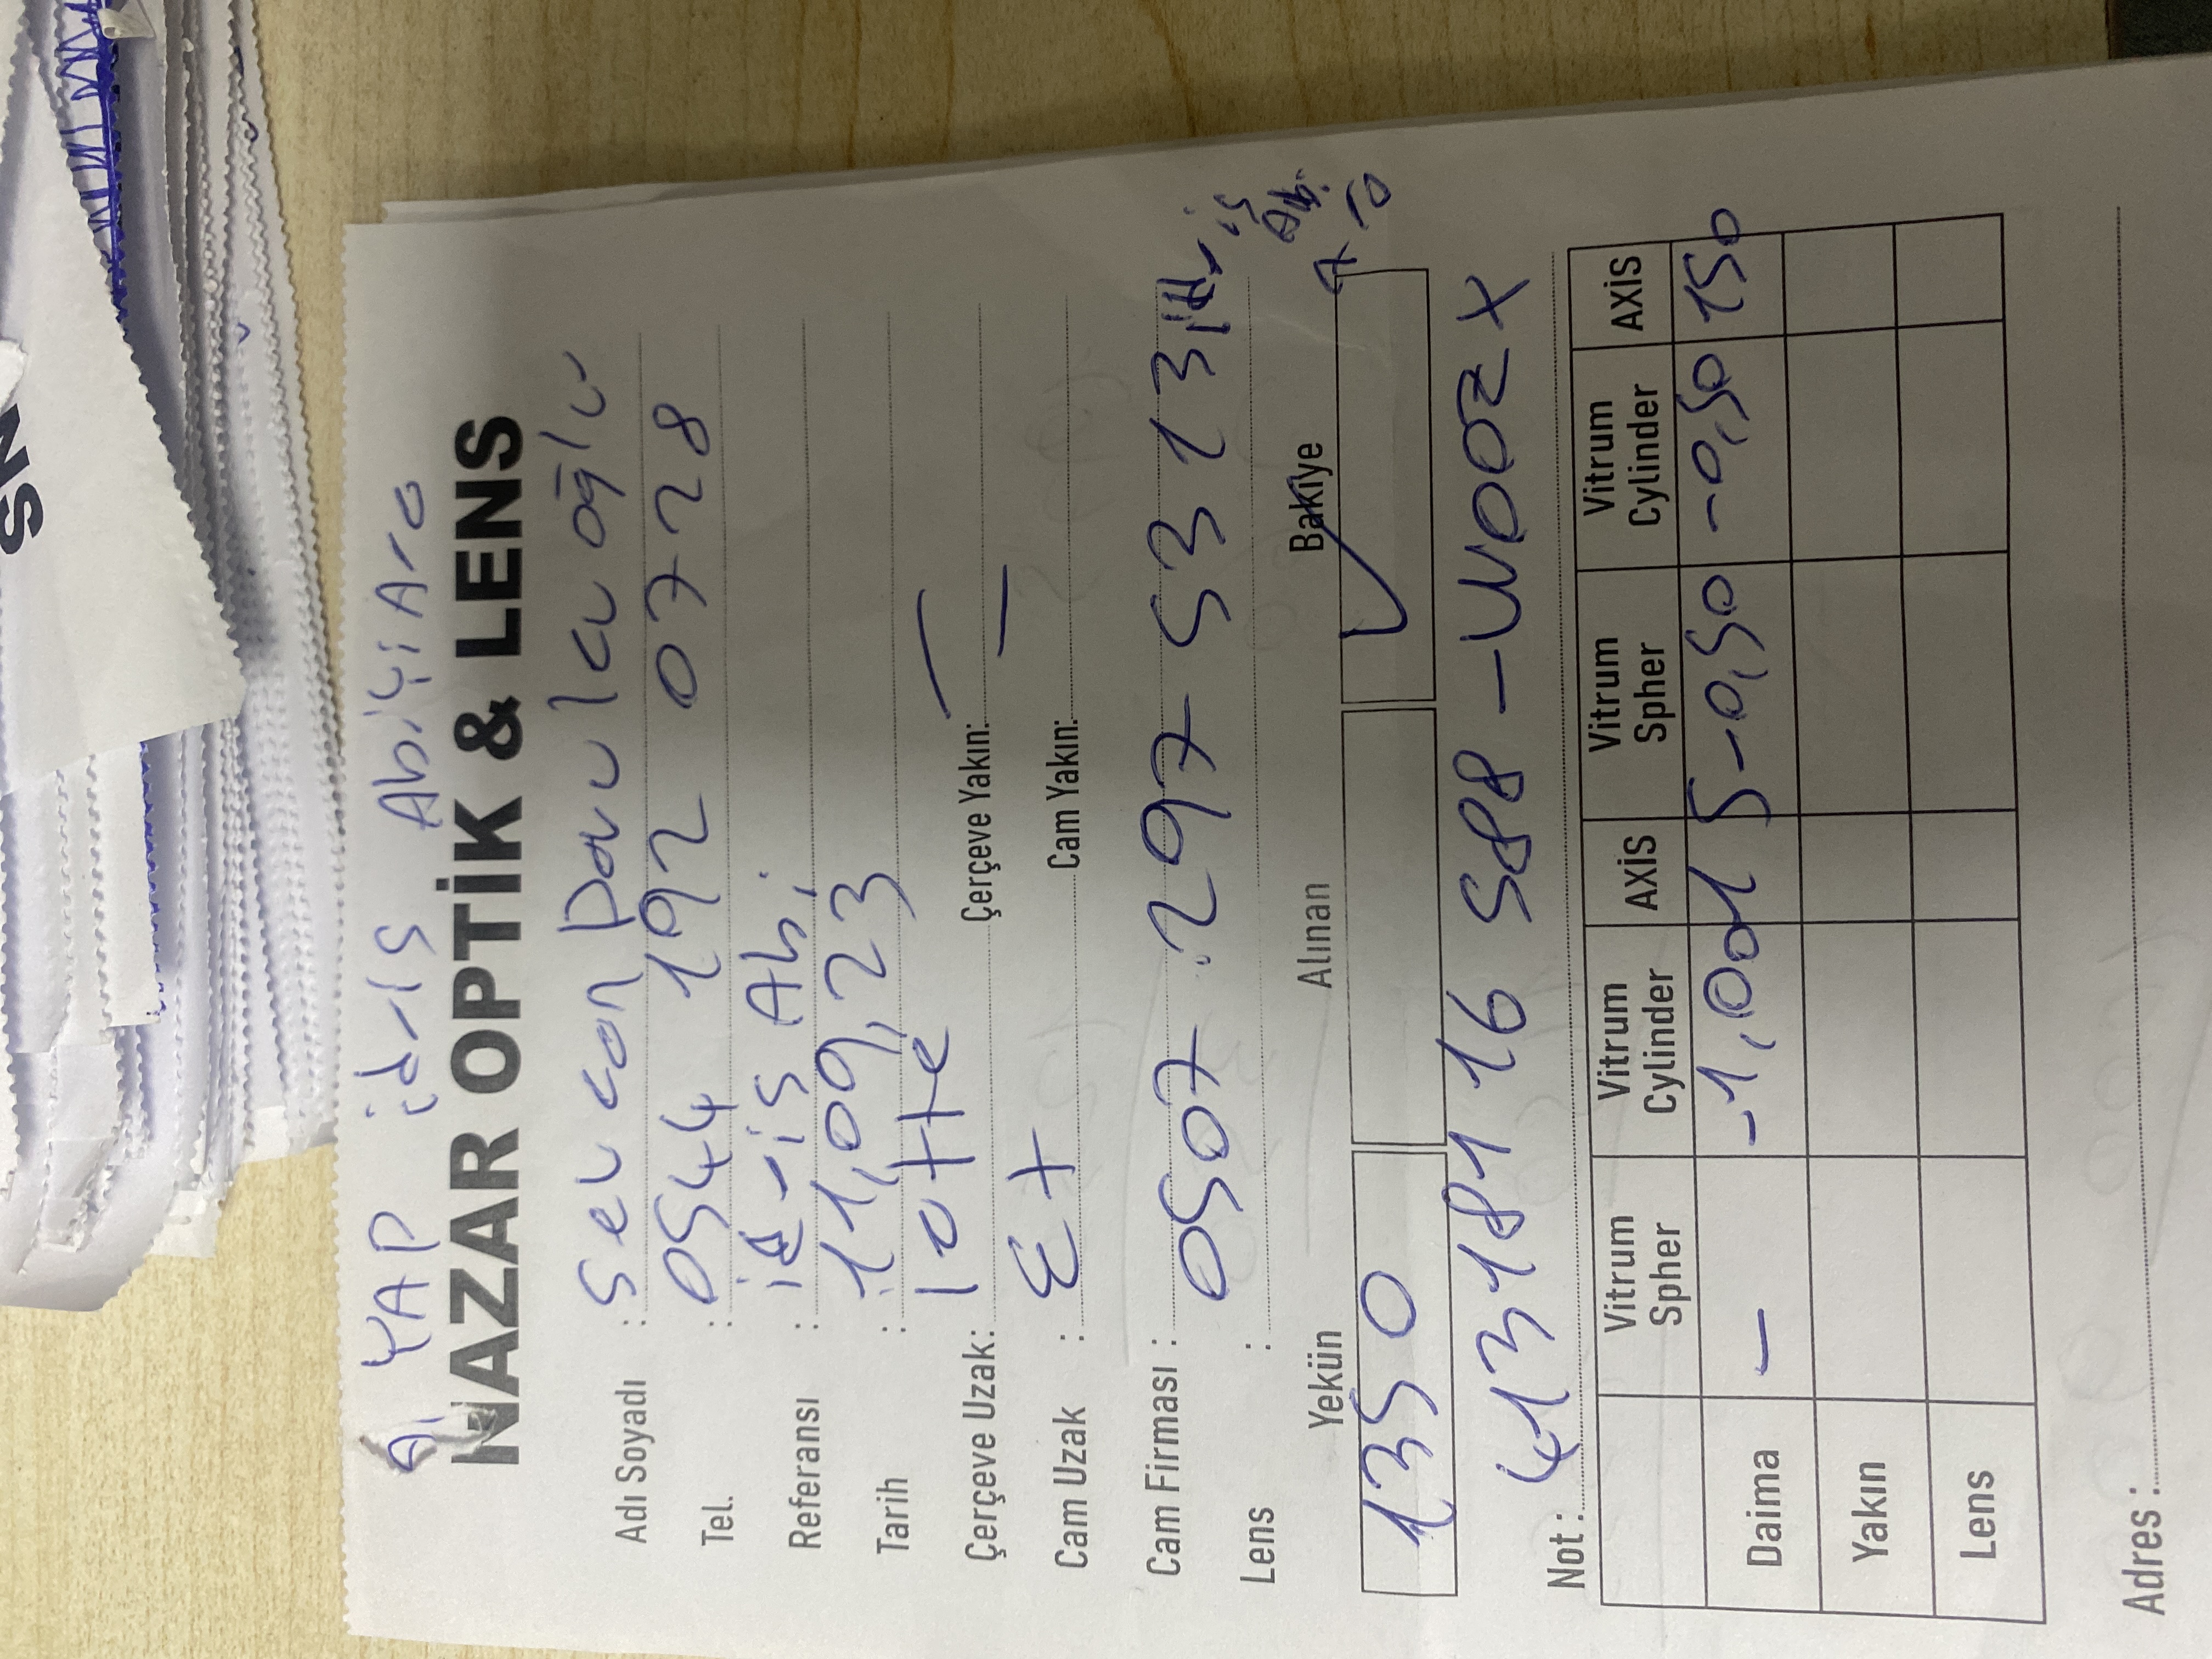 NS
A, YAP idris Abiyi Ara
NAZAR OPTİK & LENS
Adı Soyadı : Selcan Davulcuoğlu
Tel. : 0544 192 0728
Referansı : idris Abi
Tarih : 11,09,23
Çerçeve Uzak: lotte Çerçeve Yakın: —
Cam Uzak : Ex Cam Yakın: —
Cam Firması :
0507 297 5313 idris Abi Ara
Lens :
Yekün Alınan Bakiye
1350 ✓
41318116 588 - W00ZX
Not :
Vitrum Spher Vitrum Cylinder AXİS Vitrum Spher Vitrum Cylinder AXİS
Daima — -1,00 15 -0,50 -0,50 150
Yakın
Lens
Adres :